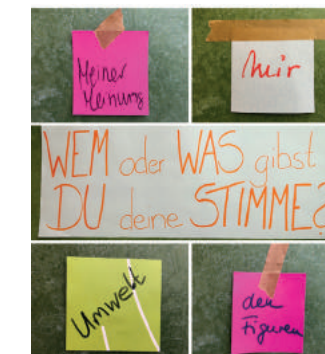 Meiner
Meinung
Mir
WEM oder WAS gibst
DU deine STIMME?
Umwelt
den
Figuren